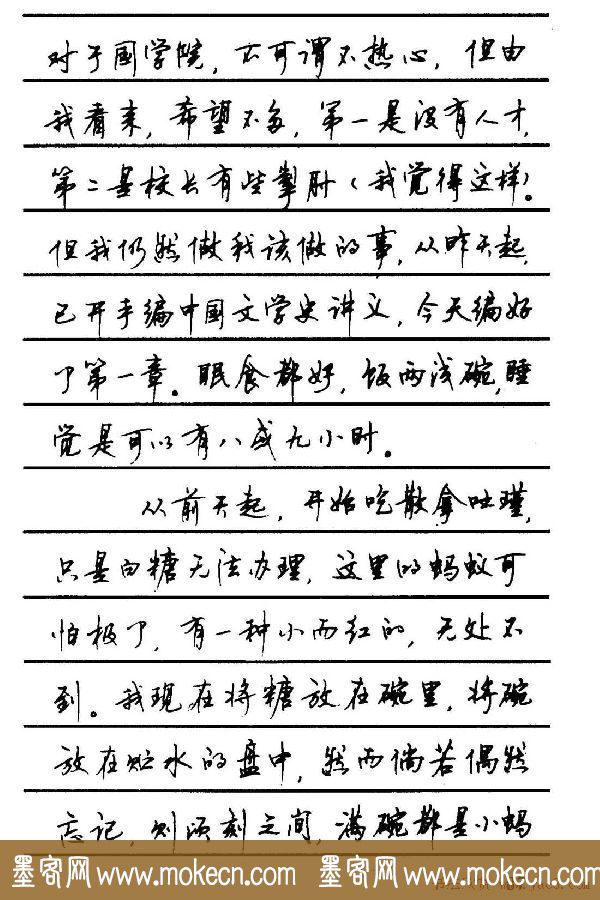 对于国学院，不可谓不热心，但由
我看来，希望不多，第一是没有人才，
第二是校长有些掣肘（我觉得这样）。
但我仍然做我该做的事，从昨天起，
已开手编中国文学史讲义，今天编好
了第一章。眠食都好，饭两浅碗，睡
觉是可以有八或九小时。
从前天起，开始吃散拿吐瑾，
只是白糖无法办理，这里的蚂蚁可
怕极了，有一种小而红的，无处不
到。我现在将糖放在碗里，将碗
放在贮水的盘中，然而倘若偶然
忘记，则顷刻之间，满碗都是小蚂
墨客网 www.mokecn.com 墨客网 www.mokecn.com